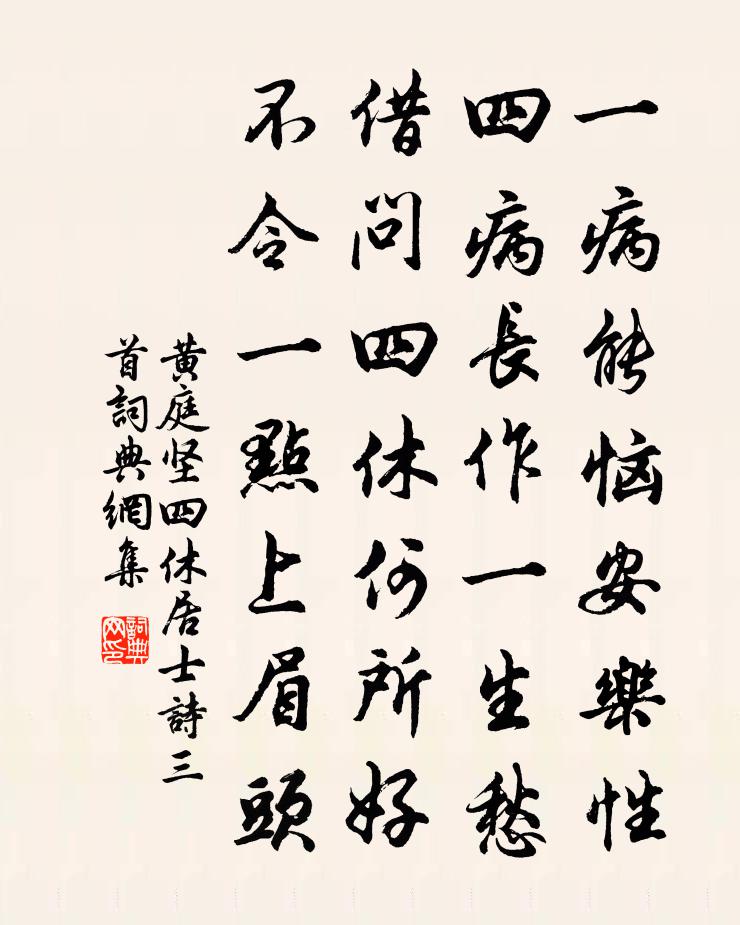 一病能恼安樂性
四病長作一生愁
借問四休何所好
不令一點上眉頭
黄庭坚四休居士詩三
首詞典網集
詞典网印